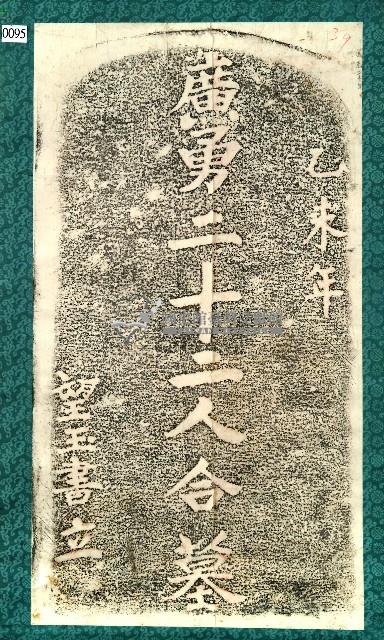 0095
39
乙未年
廣勇二十二人合墓
望玉書立